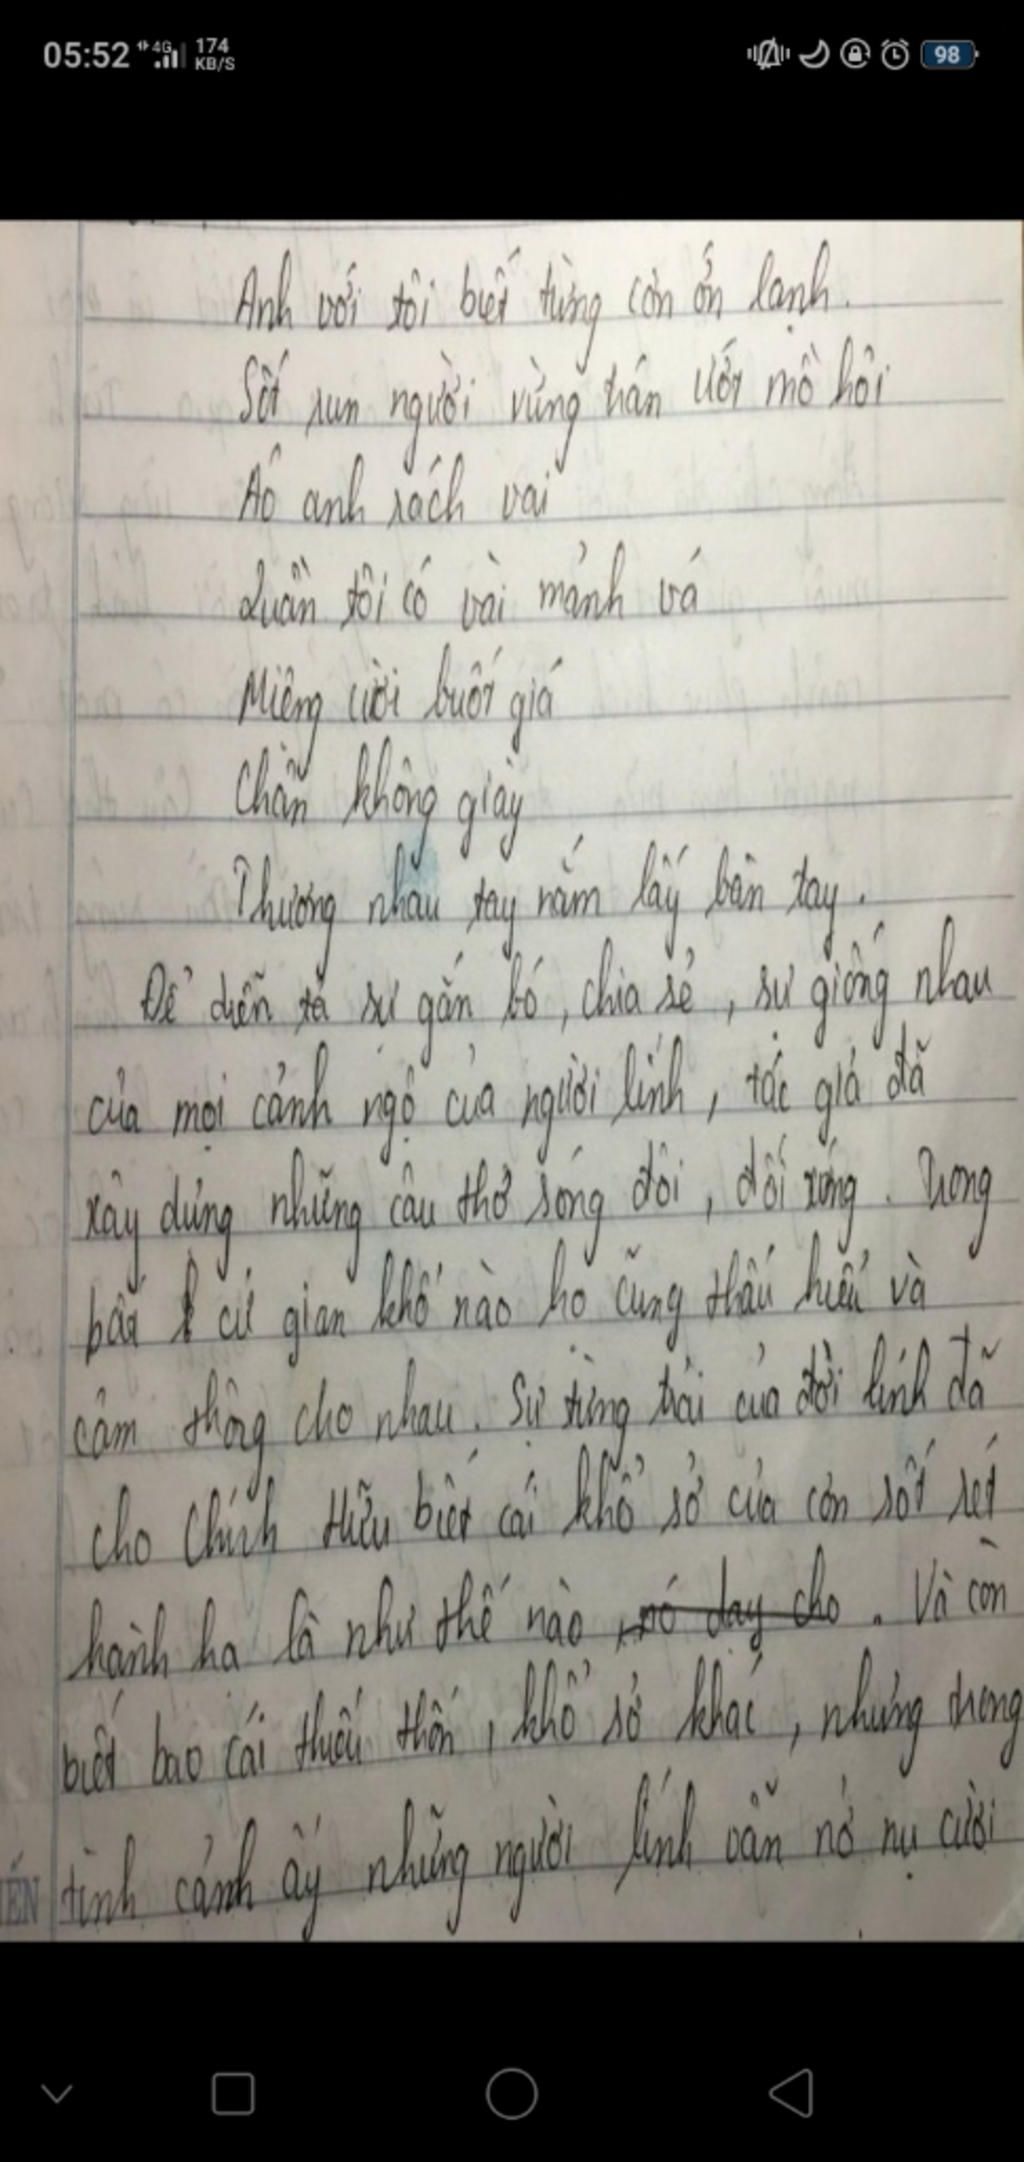 05:52 4G 174 KB/S 98
Anh với tôi biết từng cơn ớn lạnh.
Sốt run người vừng trán ướt mồ hôi
Áo anh rách vai
Quần tôi có vài mảnh vá
Miệng cười buốt giá
Chân không giày
Thương nhau tay nắm lấy bàn tay.
Để diễn tả sự gắn bó, chia sẻ, sự giống nhau
của mọi cảnh ngộ của người lính, tác giả đã
xây dựng những câu thơ sóng đôi, đối xứng. Trong
bất cứ gian khổ nào họ cũng thấu hiểu và
cảm thông cho nhau. Sự từng trải của đời lính đã
cho Chính Hữu biết cái khổ sở của cơn sốt rét
hành hạ là như thế nào nó day cho. Và còn
biết bao cái thiếu thốn, khổ sở khác, nhưng trong
tình cảnh ấy những người lính vẫn nở nụ cười